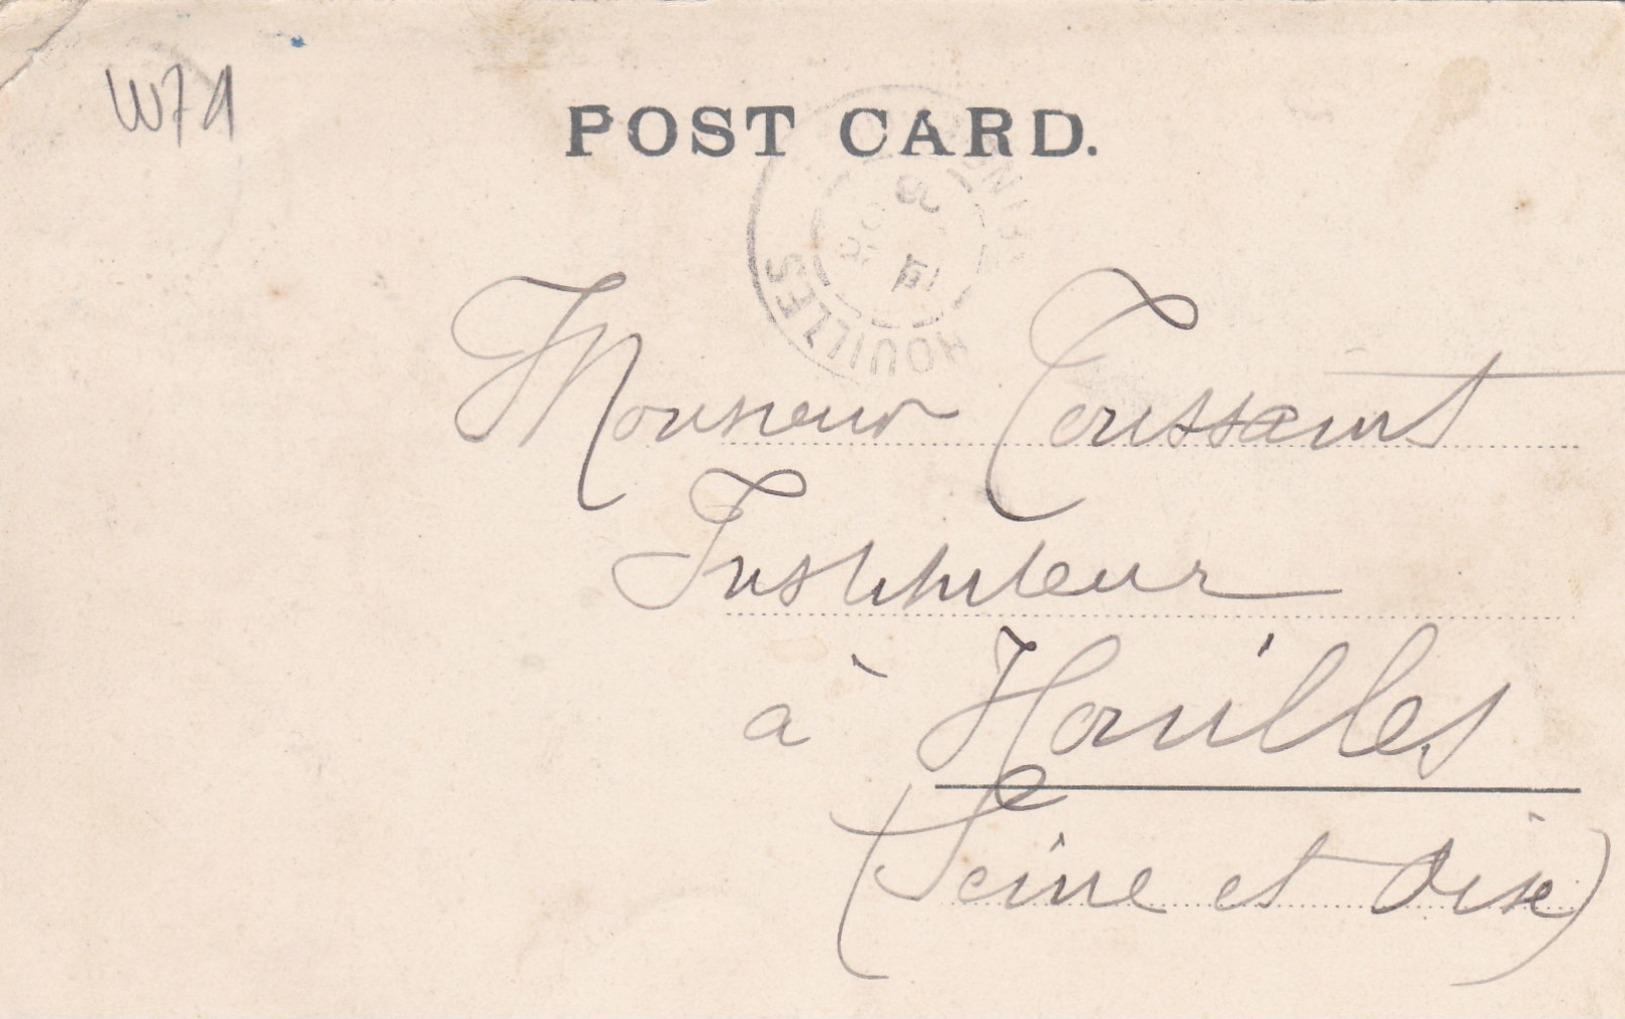 W71
POST CARD.
HOUILLES
Monsieur Toussaint
Instituteur
à Houilles
(Seine et Oise)